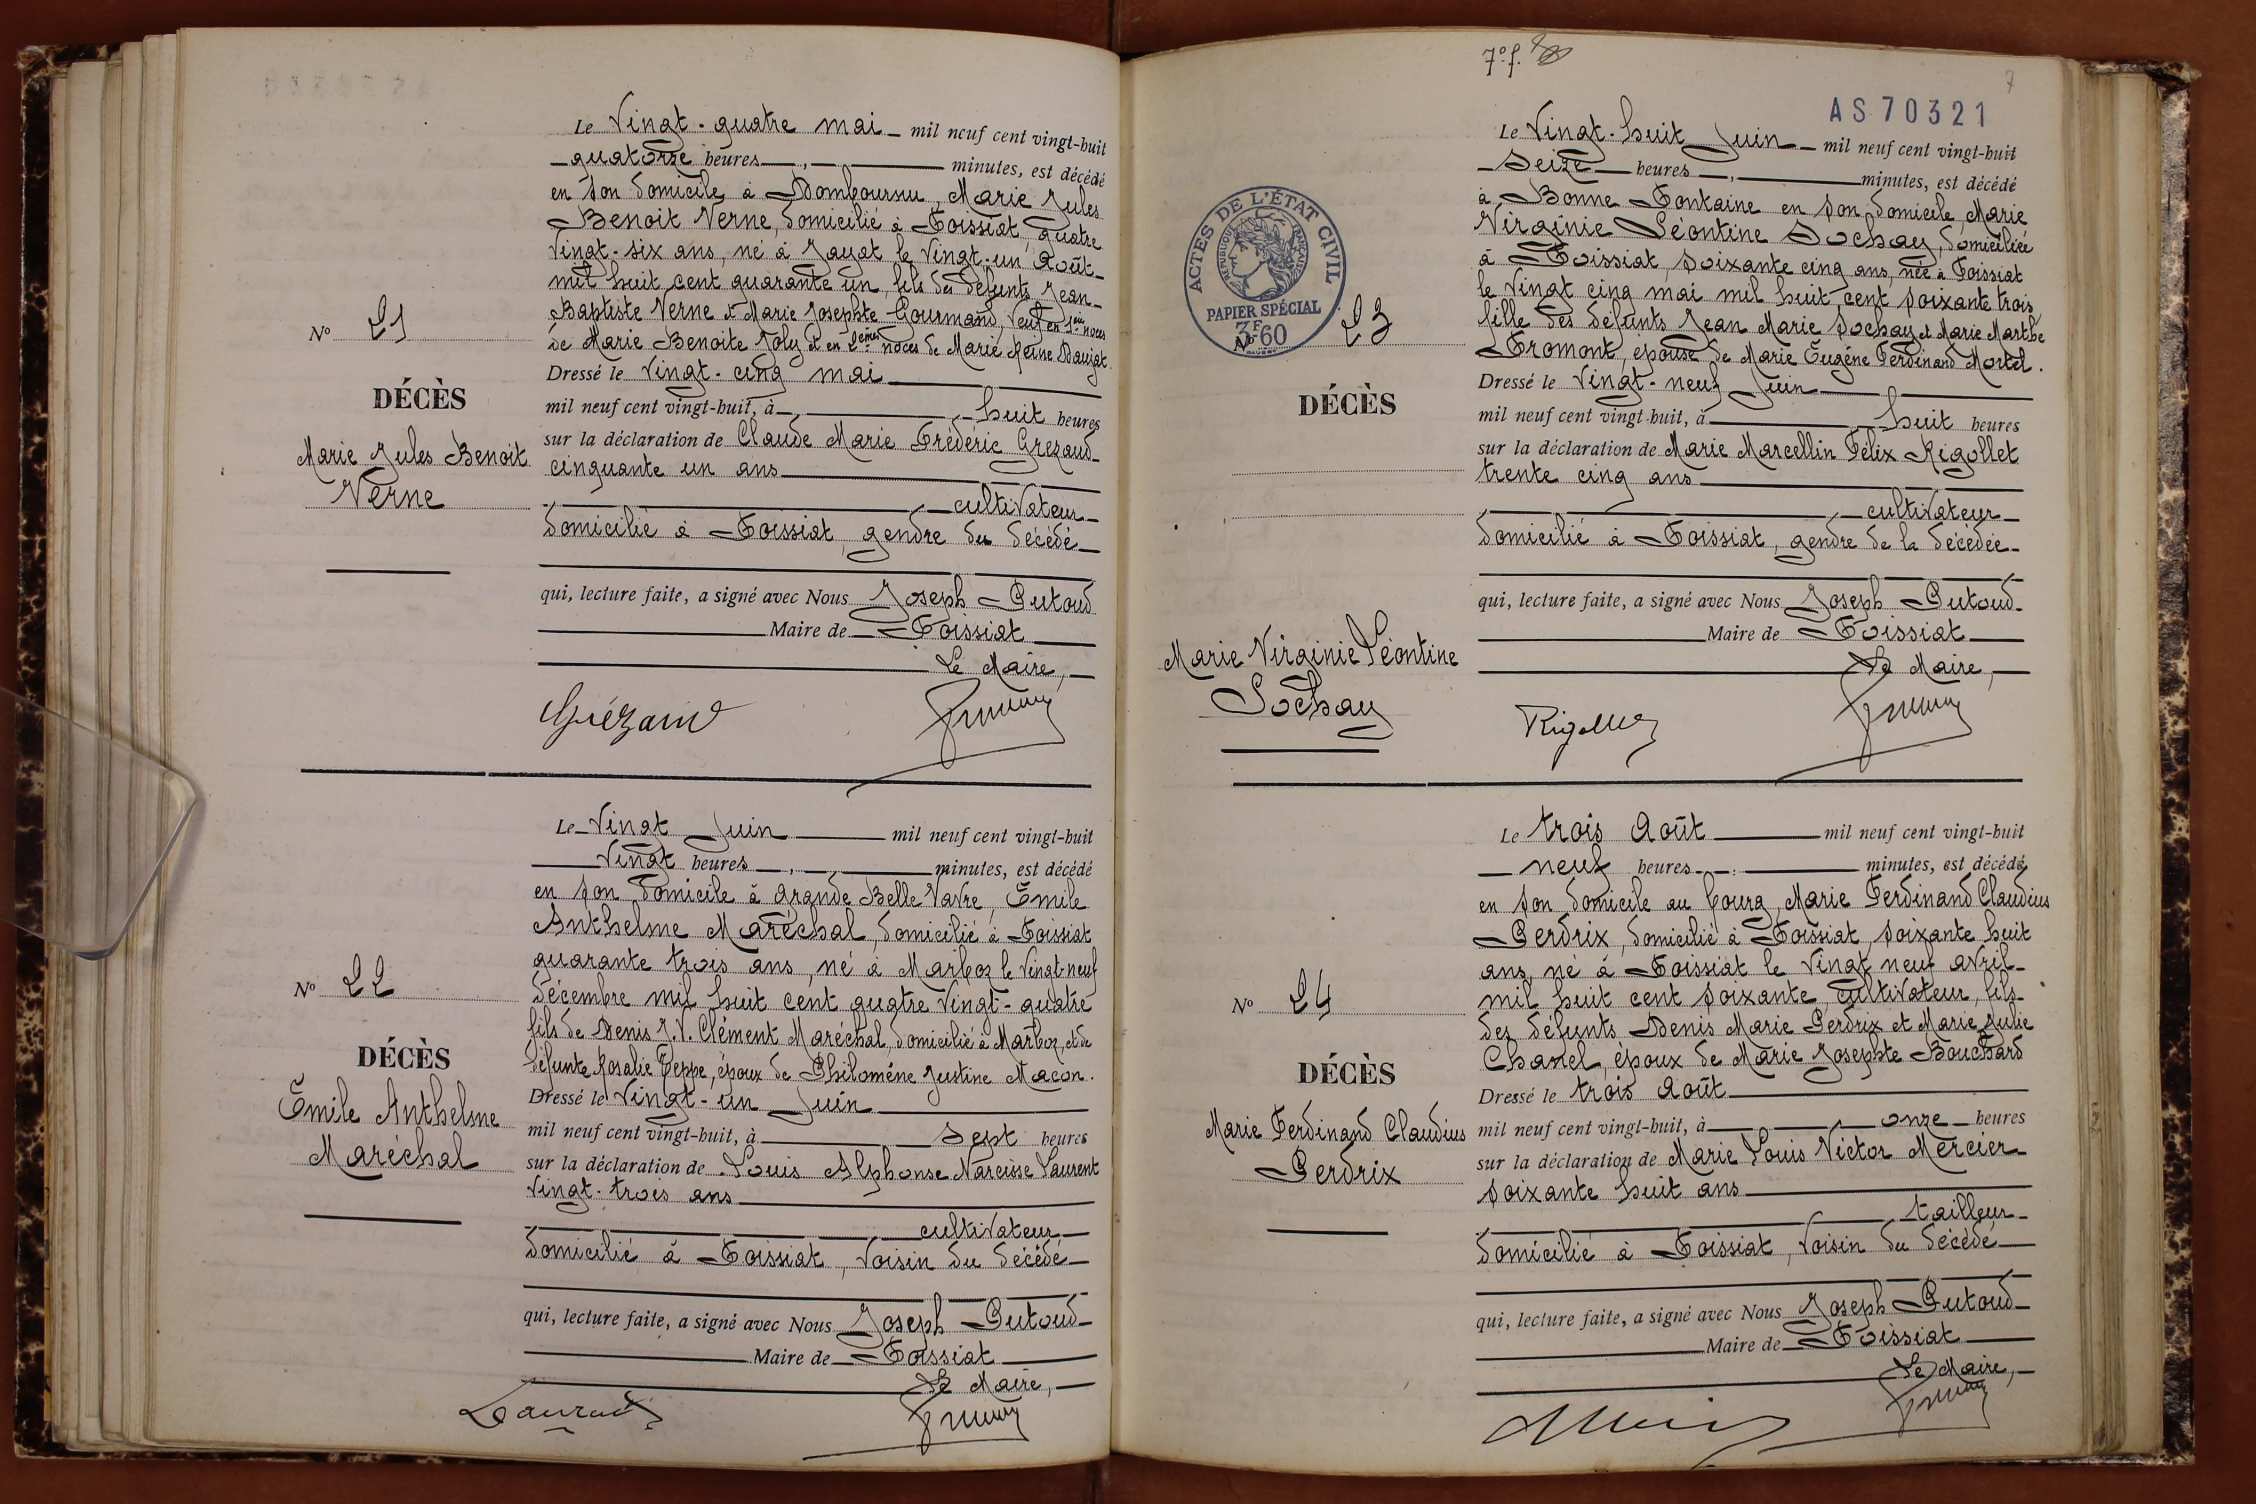 Le Vingt-quatre mai mil neuf cent vingt-huit
quatorze heures, minutes, est décédé
en son domicile à Dombournu, Marie Jules
Benoit Verne, domicilié à Foissiat, quatre
vingt-six ans, né à Jayat le vingt-un Août
mil huit cent quarante un, fils des défunts Jean
Baptiste Verne et Marie Josephte Gourmand, veuf en 1ères noces
de Marie Benoite Joly et en 2èmes noces de Marie Reine Daujat.
Dressé le vingt-cinq mai
mil neuf cent vingt-huit, à huit heures
sur la déclaration de Claude Marie Frédéric Grezaud
cinquante un ans
cultivateur
domicilié à Foissiat, gendre du décédé
qui, lecture faite, a signé avec Nous Joseph Putoud
Maire de Foissiat
Le Maire,
Grézaud
No 21
DÉCÈS
Marie Jules Benoit
Verne
Le Vingt Juin mil neuf cent vingt-huit
Vingt heures, minutes, est décédé
en son domicile à Grande Belle Vavre, Emile
Anthelme Maréchal, domicilié à Foissiat
quarante trois ans, né à Marboz le vingt-neuf
décembre mil huit cent quatre vingt-quatre
fils de Denis J.V. Clément Maréchal, domicilié à Marboz, et de
défunte Rosalie Teppe, époux de Philomène Justine Macon.
Dressé le vingt-un Juin
mil neuf cent vingt-huit, à sept heures
sur la déclaration de Louis Alphonse Narcisse Laurent
vingt-trois ans
cultivateur
domicilié à Foissiat, voisin du décédé
qui, lecture faite, a signé avec Nous Joseph Putoud
Maire de Foissiat
Le Maire,
Laurent
No 22
DÉCÈS
Emile Anthelme
Maréchal
7º f.
7
AS70321
Le Vingt-huit Juin mil neuf cent vingt-huit
Seize heures, minutes, est décédé
à Bonne Fontaine en son domicile, Marie
Virginie Léontine Sochay, domiciliée
à Foissiat, soixante cinq ans, née à Foissiat
le vingt cinq mai mil huit cent soixante trois
fille des défunts Jean Marie Sochay et Marie Marthe
Fromont, épouse de Marie Eugène Ferdinand Morel.
Dressé le vingt-neuf Juin
mil neuf cent vingt-huit, à huit heures
sur la déclaration de Marie Marcellin Félix Rigollet
trente cinq ans
cultivateur
domicilié à Foissiat, gendre de la décédée
qui, lecture faite, a signé avec Nous Joseph Putoud
Maire de Foissiat
Le Maire,
Rigollet
ACTES DE L'ÉTAT CIVIL
RÉPUBLIQUE FRANÇAISE
PAPIER SPÉCIAL
3F60
No 23
DÉCÈS
Marie Virginie Léontine
Sochay
Le trois Août mil neuf cent vingt-huit
neuf heures, minutes, est décédé
en son domicile au bourg, Marie Ferdinand Claudius
Perdrix, domicilié à Foissiat, soixante huit
ans, né à Foissiat le vingt neuf avril
mil huit cent soixante, cultivateur, fils
des défunts Denis Marie Perdrix et Marie Julie
Chanel, époux de Marie Josephte Bouchard
Dressé le trois Août
mil neuf cent vingt-huit, à onze heures
sur la déclaration de Marie Louis Victor Mercier
soixante huit ans
tailleur
domicilié à Foissiat, voisin du décédé
qui, lecture faite, a signé avec Nous Joseph Putoud
Maire de Foissiat
Le Maire,
No 24
DÉCÈS
Marie Ferdinand Claudius
Perdrix